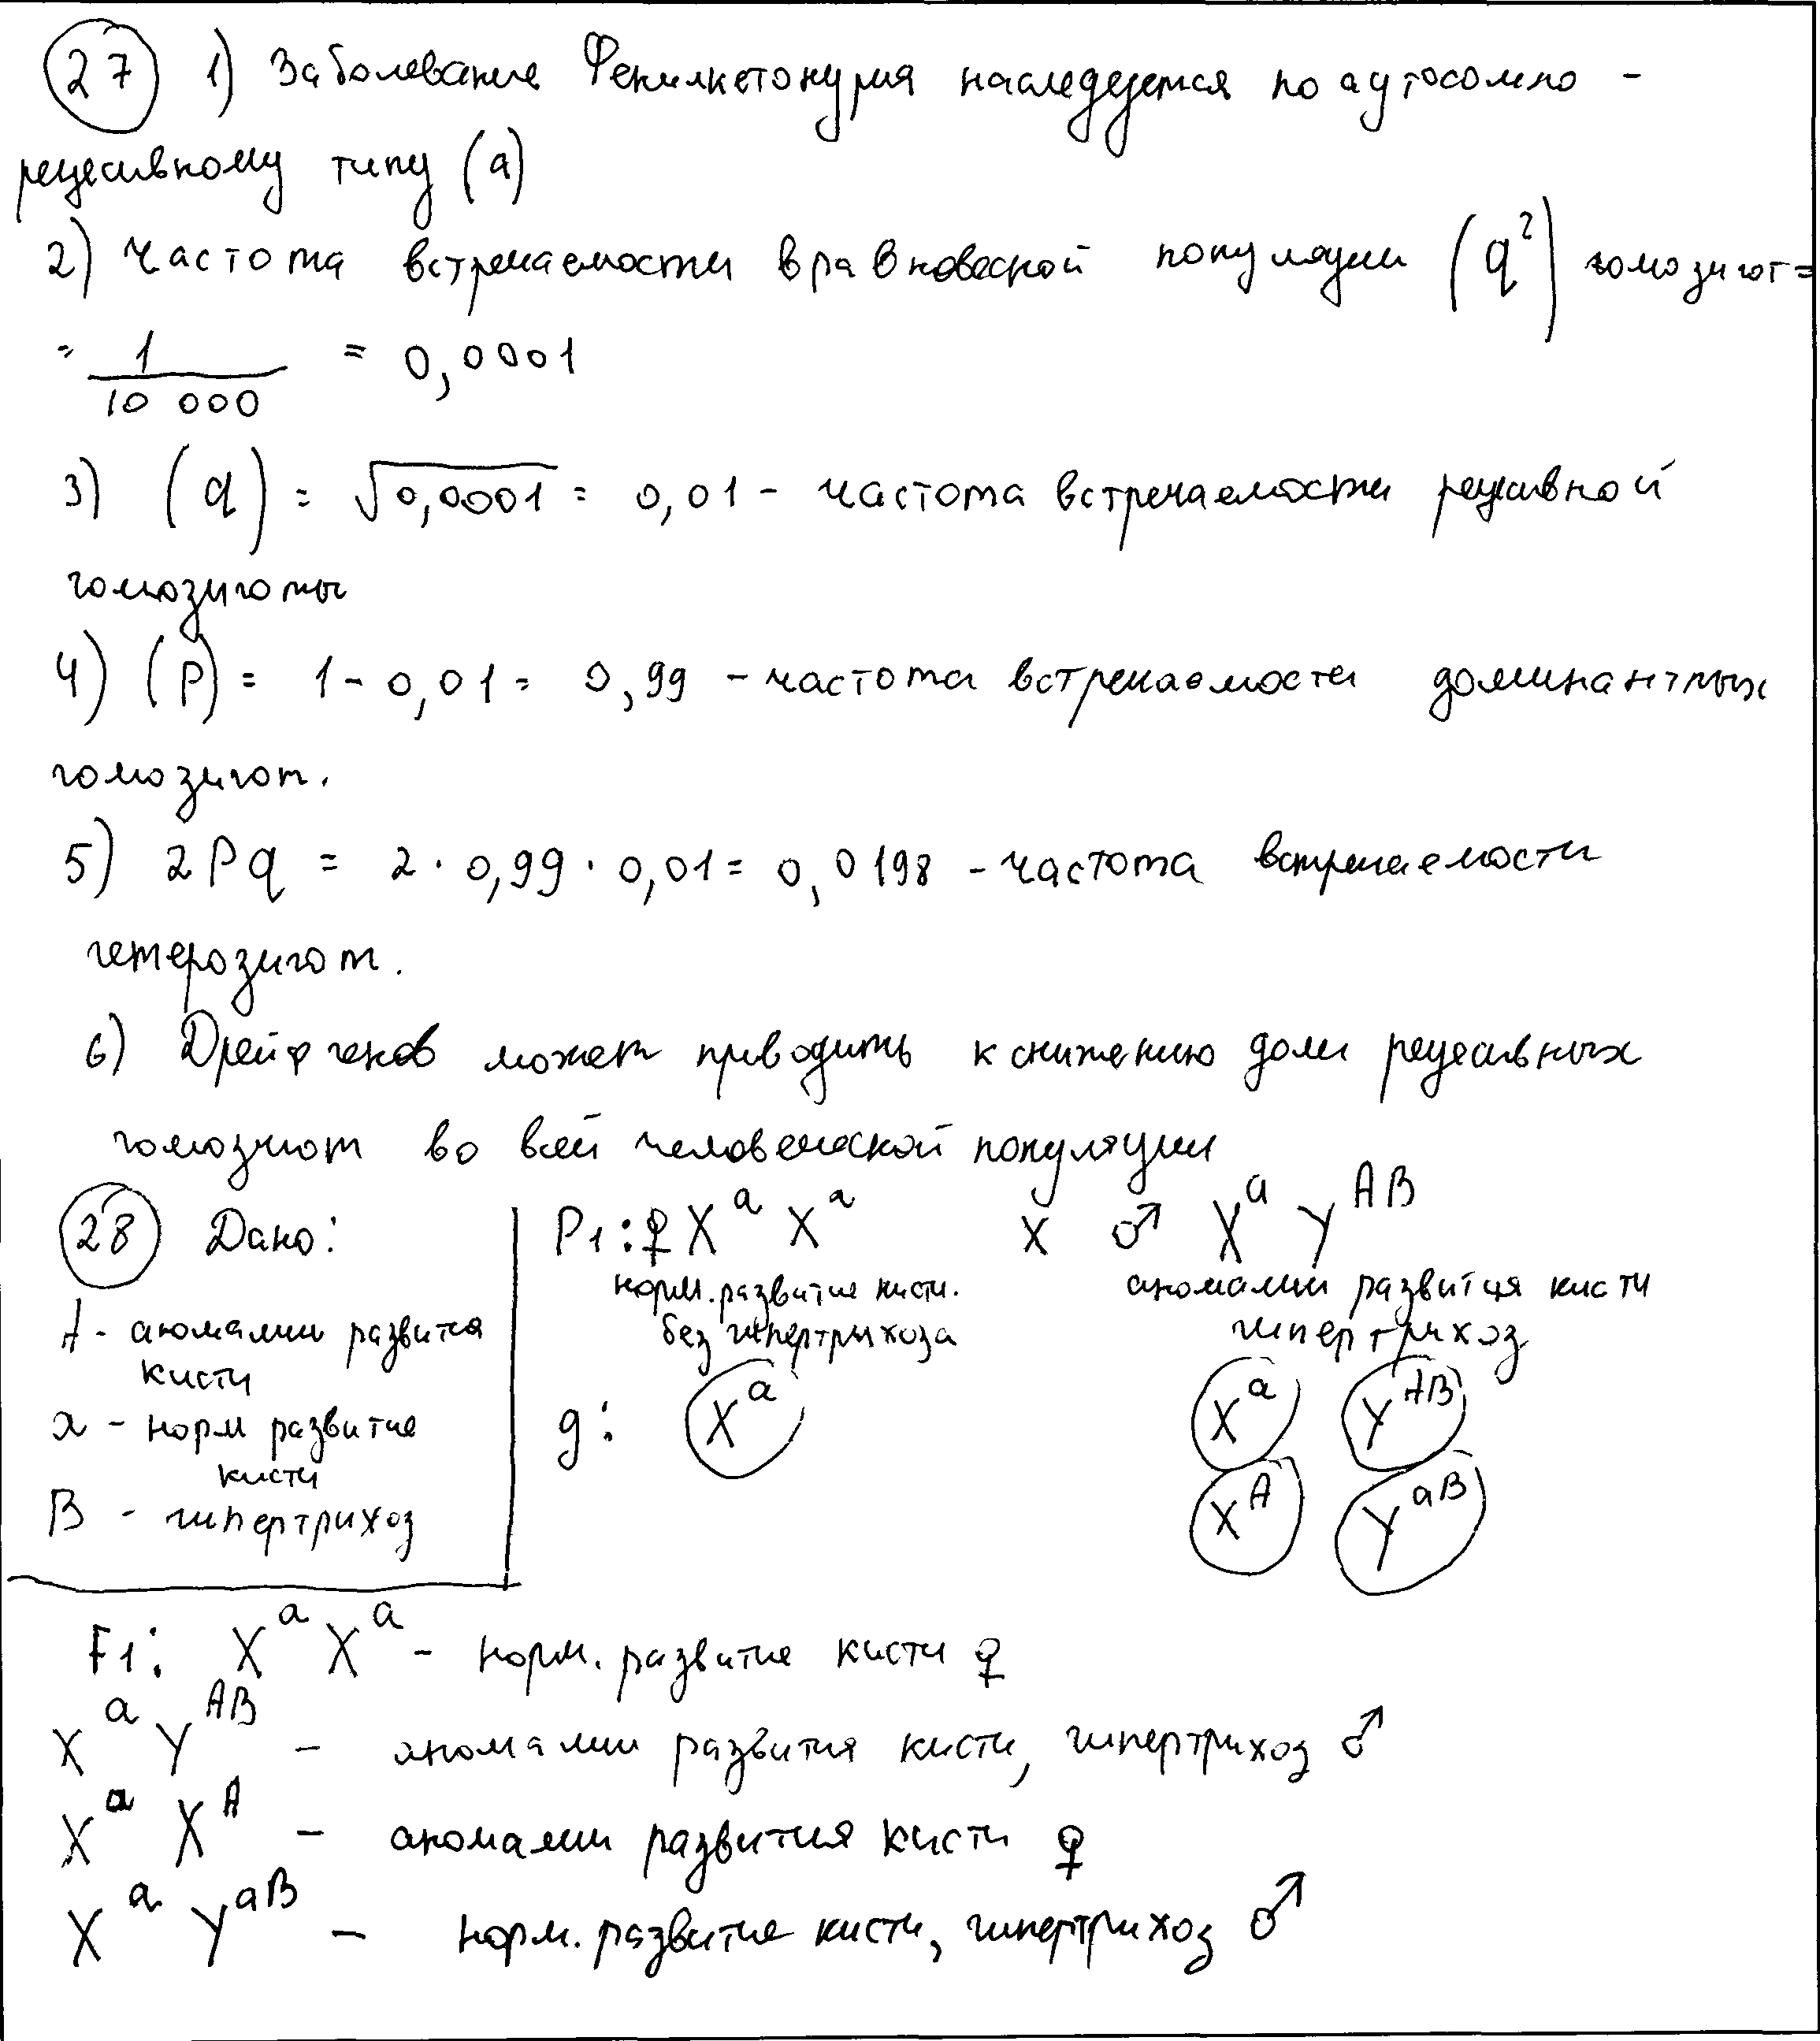 27 1) Заболевание Фенилкетонурия наследуется по аутосомно -
рецесивному типу (a)
2) Частота встречаемости в равновесной популяции (q²) гомозигот =
= 1/10 000 = 0,0001
3) (q) = √0,0001 = 0,01 - частота встречаемости рецесивной
гомозиготы
4) (P) = 1 - 0,01 = 0,99 - частота встречаемости доминантных
гомозигот.
5) 2Pq = 2 · 0,99 · 0,01 = 0,0198 - частота встречаемости
гетерозигот.
6) Дрейф генов может приводить к снижению доли рецесивных
гомозигот во всей человеческой популяции
28 Дано:
A - аномалии развития
кисти
a - норм развитие
кисти
B - гипертрихоз
P1: ♀ XᵃXᵃ x ♂ XᵃYᴬᴮ
норм. развитие кисти. аномалии развития кисти
без гипертрихоза гипертрихоз
g: Xᵃ Xᵃ Yᴬᴮ
Xᴬ YᵃᴮF1: XᵃXᵃ - норм. развитие кисти ♀
XᵃYᴬᴮ - аномалии развития кисти, гипертрихоз ♂
XᵃXᴬ - аномалии развития кисти ♀
XᵃYᵃᴮ - норм. развитие кисти, гипертрихоз ♂